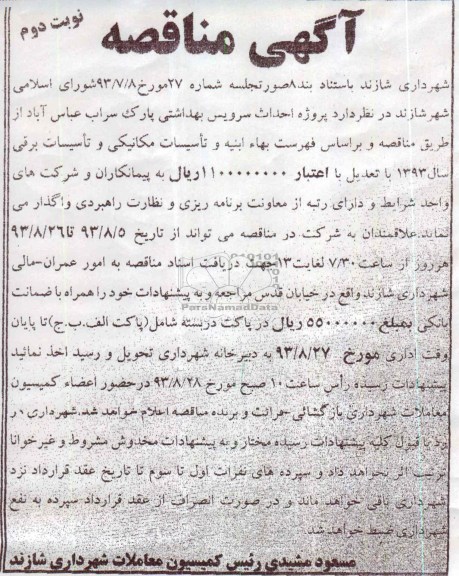 آگهی مناقصه
نوبت دوم
شهرداری شازند باستناد بند۸صورتجلسه شماره ۲۷مورخ۹۳/۷/۸شورای اسلامی
شهرشازند در نظردارد پروژه احداث سرویس بهداشتی پارک سراب عباس آباد از
طریق مناقصه و براساس فهرست بهاء ابنیه و تأسیسات مکانیکی و تأسیسات برقی
سال۱۳۹۳ با تعدیل با اعتبار ۱۱۰۰۰۰۰۰۰۰ریال به پیمانکاران و شرکت های
واجد شرایط و دارای رتبه از معاونت برنامه ریزی و نظارت راهبردی واگذار می
نماید.علاقمندان به شرکت در مناقصه می تواند از تاریخ ۹۳/۸/۵ تا۹۳/۸/۲۶
هرروز از ساعت۷/۳۰ لغایت۱۳جهت دریافت اسناد مناقصه به امور عمران-مالی
شهرداری شازند واقع در خیابان قدس مراجعه و به پیشنهادات خود را همراه با ضمانت
ParsNamadData
بانکی بمبلغ ۵۵۰۰۰۰۰۰ ریال در پاکت دربسته شامل(پاکت الف.ب.ج)تا پایان
وقت اداری مورخ ۹۳/۸/۲۷ به دبیرخانه شهرداری تحویل و رسید اخذ نمائید
پیشنهادات رسیده رأس ساعت۱۰ صبح مورخ ۹۳/۸/۲۸ درحضور اعضاء کمیسیون
معاملات شهرداری بازگشائی قرائت و برنده مناقصه اعلام خواهد شد.شهرداری در
رد یا قبول کلیه پیشنهادات رسیده مختار و به پیشنهادات مخدوش مشروط و غیرخوانا
ترتیب اثر نخواهد داد و سپرده های نفرات اول تا سوم تا تاریخ عقد قرارداد نزد
شهرداری باقی خواهد ماند و در صورت انصراف از عقد قرارداد سپرده به نفع
شهرداری ضبط خواهد شد
مسعود مشیدی رئیس کمیسیون معاملات شهرداری شازند